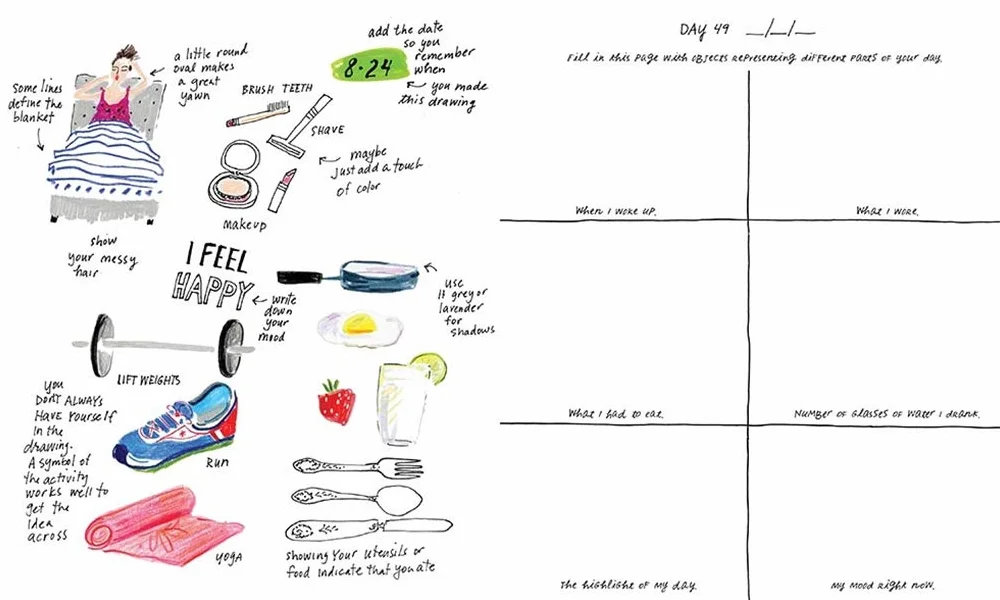 add the date
so you
remember
when
you made
this drawing
8·24
a little round
oval makes
a great
yawn
Some lines
define the
blanket
BRUSH TEETH
SHAVE
maybe
just add a touch
of color
makeup
show
your messy
hair
I FEEL
HAPPY
write
down
your
mood
use
lt grey or
lavender
for
shadows
LIFT WEIGHTS
you
DON'T ALWAYS
HAVE Yourself
In the
drawing.
A symbol of
the activity
works well to
get the
idea
across
Run
YOGA
showing your utensils or
food indicate that you ate
DAY 49 __/__/__
Fill in this page with objects representing different parts of your day.
When I woke up.
What I wore.
What I had to eat.
Number of glasses of water I drank.
The highlight of my day.
My mood right now.